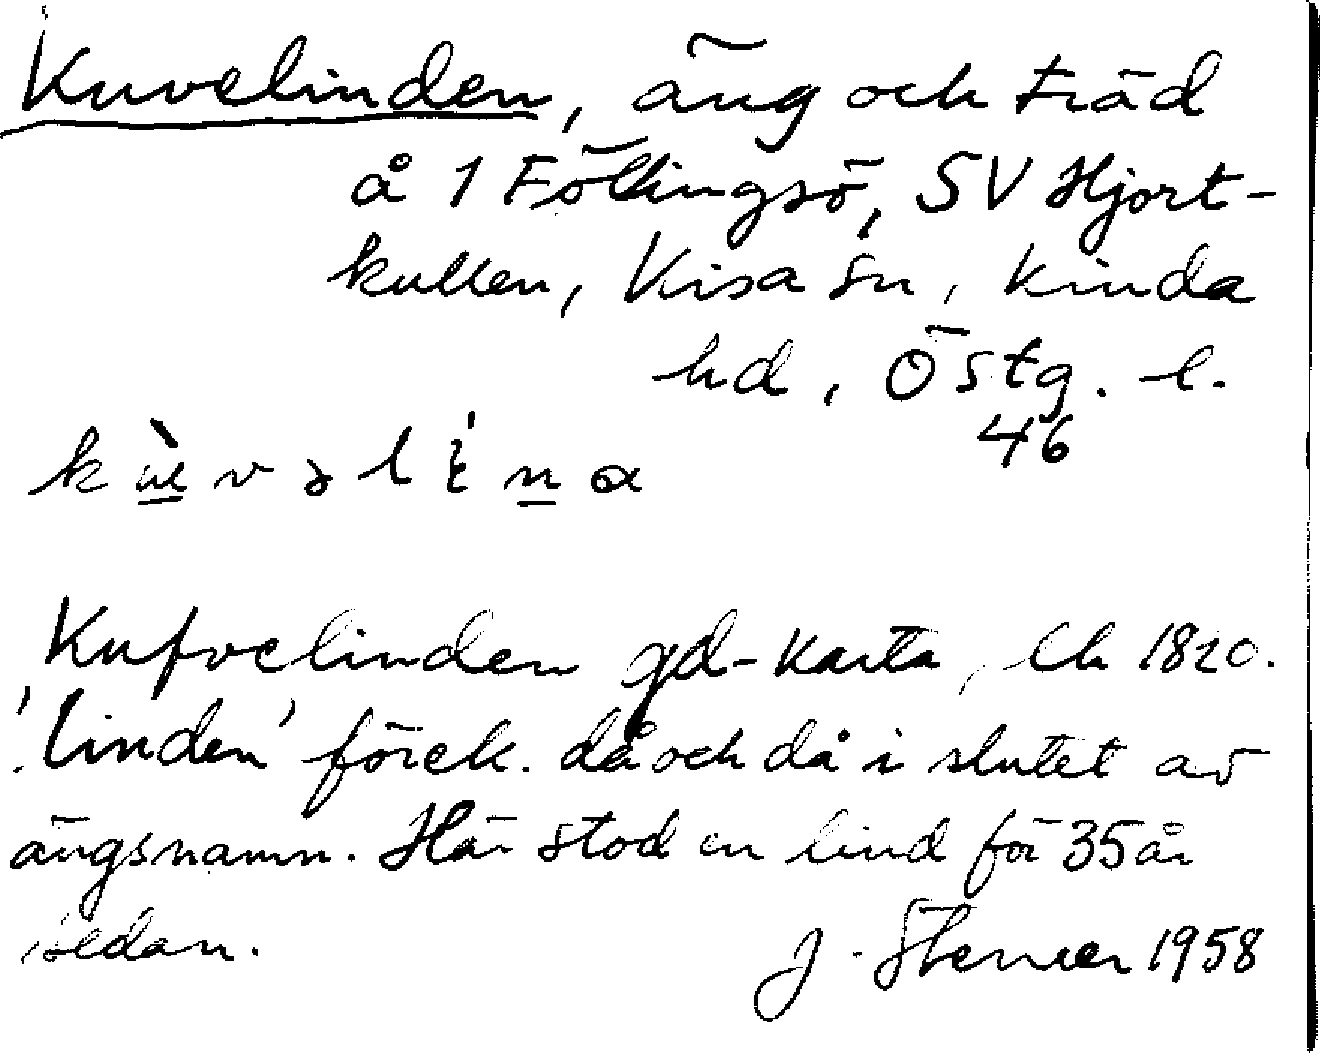 Kuvelinden, äng och träd
å 1 Föllingsö, SV Hjort-
kullen, Kisa sn, Kinda
hd, Östg. l.
46
Kufvelinden gd-karta, LK 1820.
'linden' förek. då och då i slutet av
ängsnamn. Här stod en lind för 35 år
sedan.
J. Stenver 1958